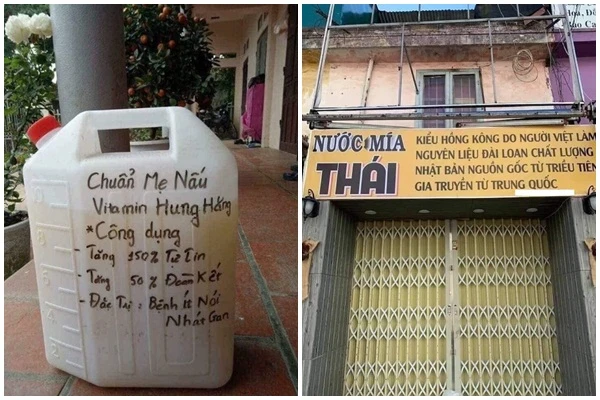 Chuẩn Mẹ Nấu
Vitamin Hung Hăng
*Công dụng
- Tăng 150% Tự Tin
- Tăng 50% Đoàn Kết
- Đặc Trị: Bệnh Ít Nói
Nhát Gan
NƯỚC MÍA
THÁI
KIỂU HỒNG KÔNG DO NGƯỜI VIỆT LÀM
NGUYÊN LIỆU ĐÀI LOAN CHẤT LƯỢNG
NHẬT BẢN NGUỒN GỐC TỪ TRIỀU TIÊN
GIA TRUYỀN TỪ TRUNG QUỐC